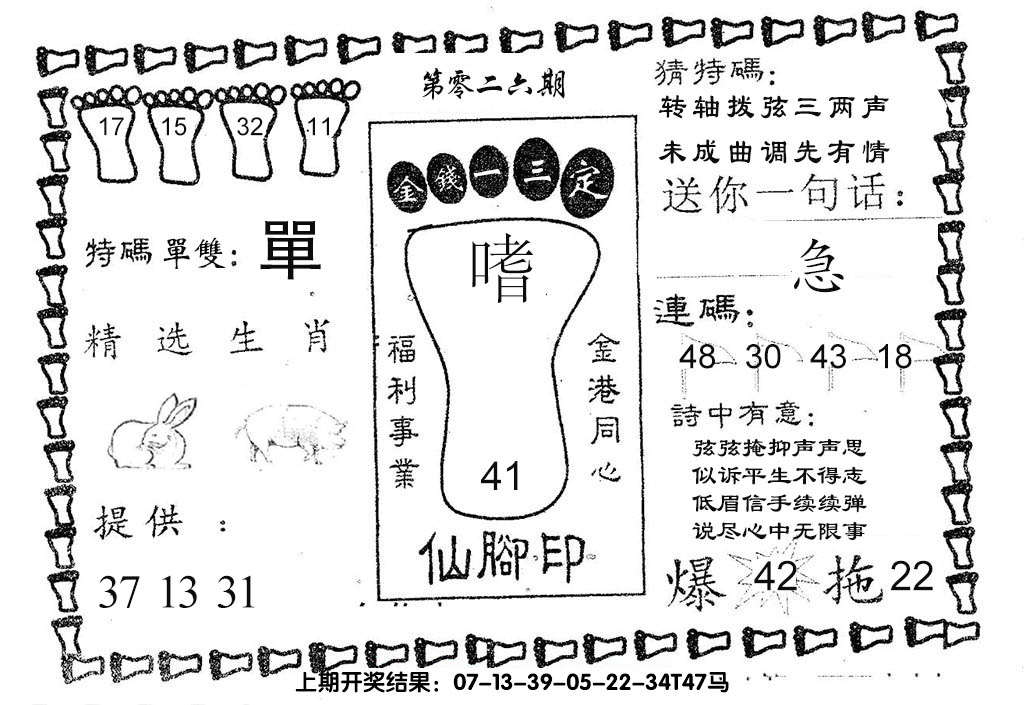 第零二六期
17 15 32 11
特碼單雙：單
精选生肖
提供：
37 13 31
金錢一三定
嗜
福利事業
金港同心
41
仙腳印
猜特碼：
转轴拨弦三两声
未成曲调先有情
送你一句话：
急
連碼：
48 30 43 18
詩中有意：
弦弦掩抑声声思
似诉平生不得志
低眉信手续续弹
说尽心中无限事
爆 42 拖 22
上期开奖结果：07-13-39-05-22-34T47马